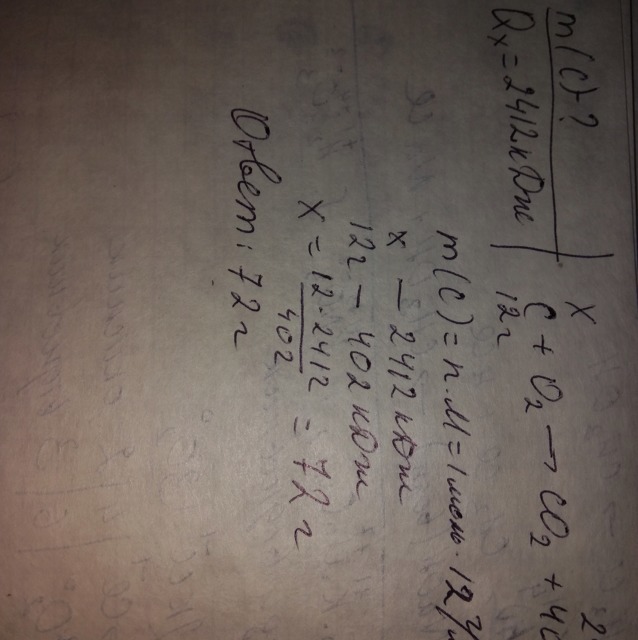 m(C)-?
Qx = 2412 кДж
x 2
C + O₂ → CO₂ + 40
12г
m(C) = n·M = 1 моль · 12 г/
x – 2412 кДж
12г – 402 кДж
x = 12·2412 / 402 = 72 г
Ответ: 72 г